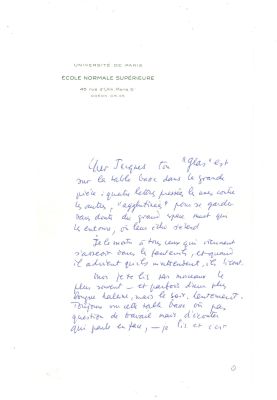 UNIVERSITÉ DE PARIS
ECOLE NORMALE SUPÉRIEURE
45 rue d'Ulm, Paris 5e
Cher Jacques ton "Glas" est
sur la table basse dans la grande
pièce : quatre lettres, pressées les unes contre
les autres, pour se garder
du grand qui
le entoure, où leur écho s'étend
Je le montre à tous ceux qui viennent
s'asseoir dans les fauteuils, et quand
il advient qu'ils m'entendent, ils lisent.
Moi je te lis par morceaux le
plus souvent – et parfois d'une plus
longue haleine, mais le soir, lentement.
Toujours sur cette table basse où pas
question de travail mais d'écouter
qui parle – je lis et c'est